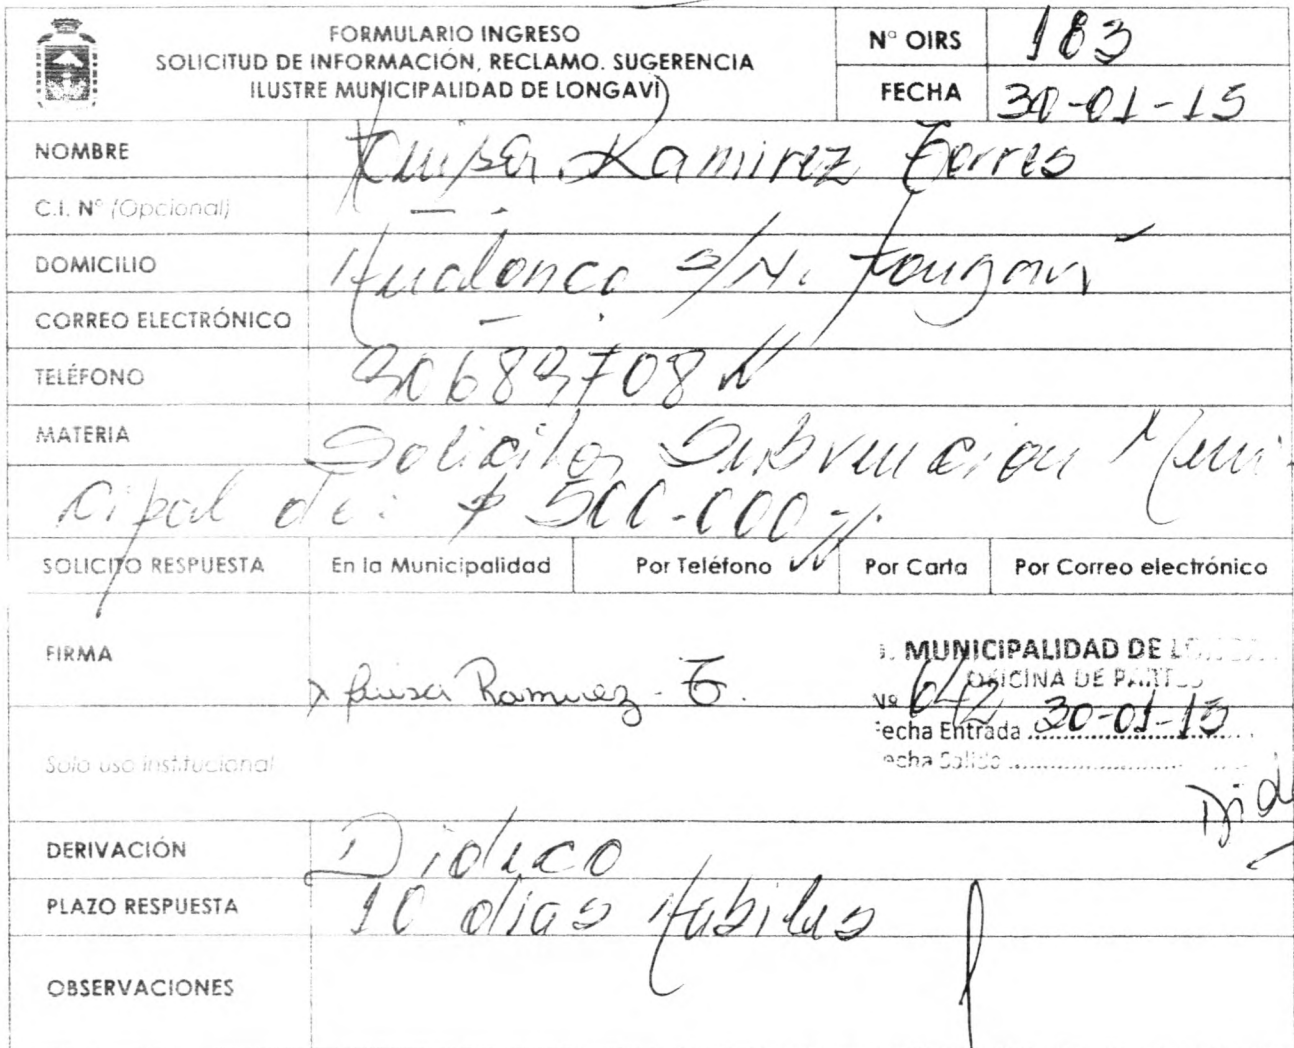 FORMULARIO INGRESO
SOLICITUD DE INFORMACIÓN, RECLAMO. SUGERENCIA
ILUSTRE MUNICIPALIDAD DE LONGAVÍ
Nº OIRS 183
FECHA 30-01-15
NOMBRE Luisa Ramirez Torres
C.I. Nº (Opcional) -.
DOMICILIO S/N. Longaví
CORREO ELECTRÓNICO -.
TELÉFONO 90689708
MATERIA Solicita Subvencion Muni-
cipal de: $ 500.000
SOLICITO RESPUESTA En la Municipalidad Por Teléfono Por Carta Por Correo electrónico
FIRMA x Luisa Ramirez - T.
I. MUNICIPALIDAD DE LONGAVI
OFICINA DE PARTES
Nº 642
Fecha Entrada 30-01-15
Fecha Salida
Solo uso institucional
Did
DERIVACIÓN Dideco
PLAZO RESPUESTA 10 dias Habiles
OBSERVACIONES